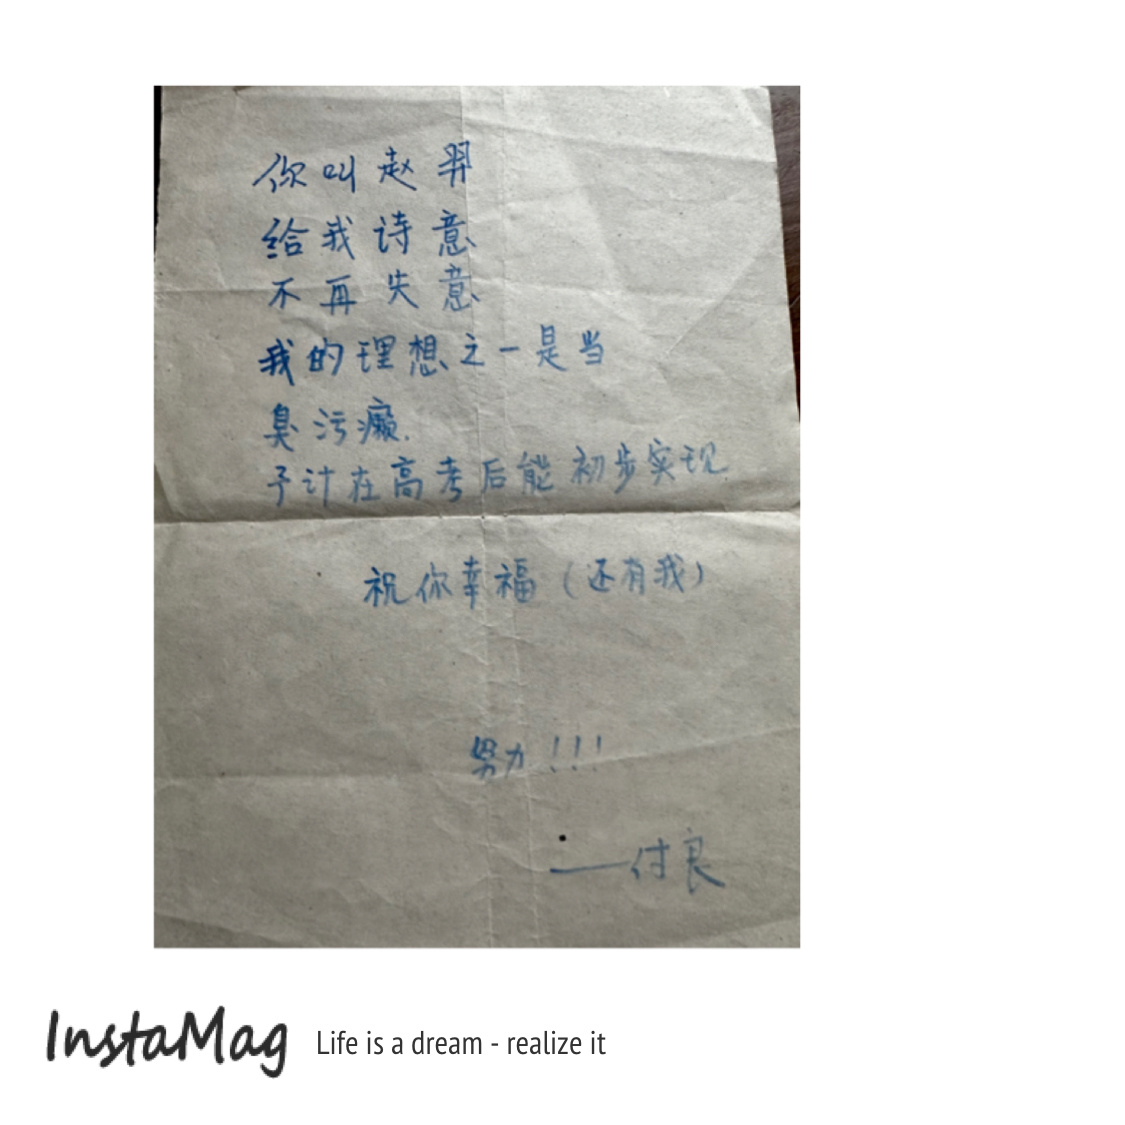 你叫赵羿
给我诗意
不再失意
我的理想之一是当
臭污癞.
予计在高考后能初步实现
祝你幸福（还有我）
努力！！！
——付良
InstaMag Life is a dream - realize it